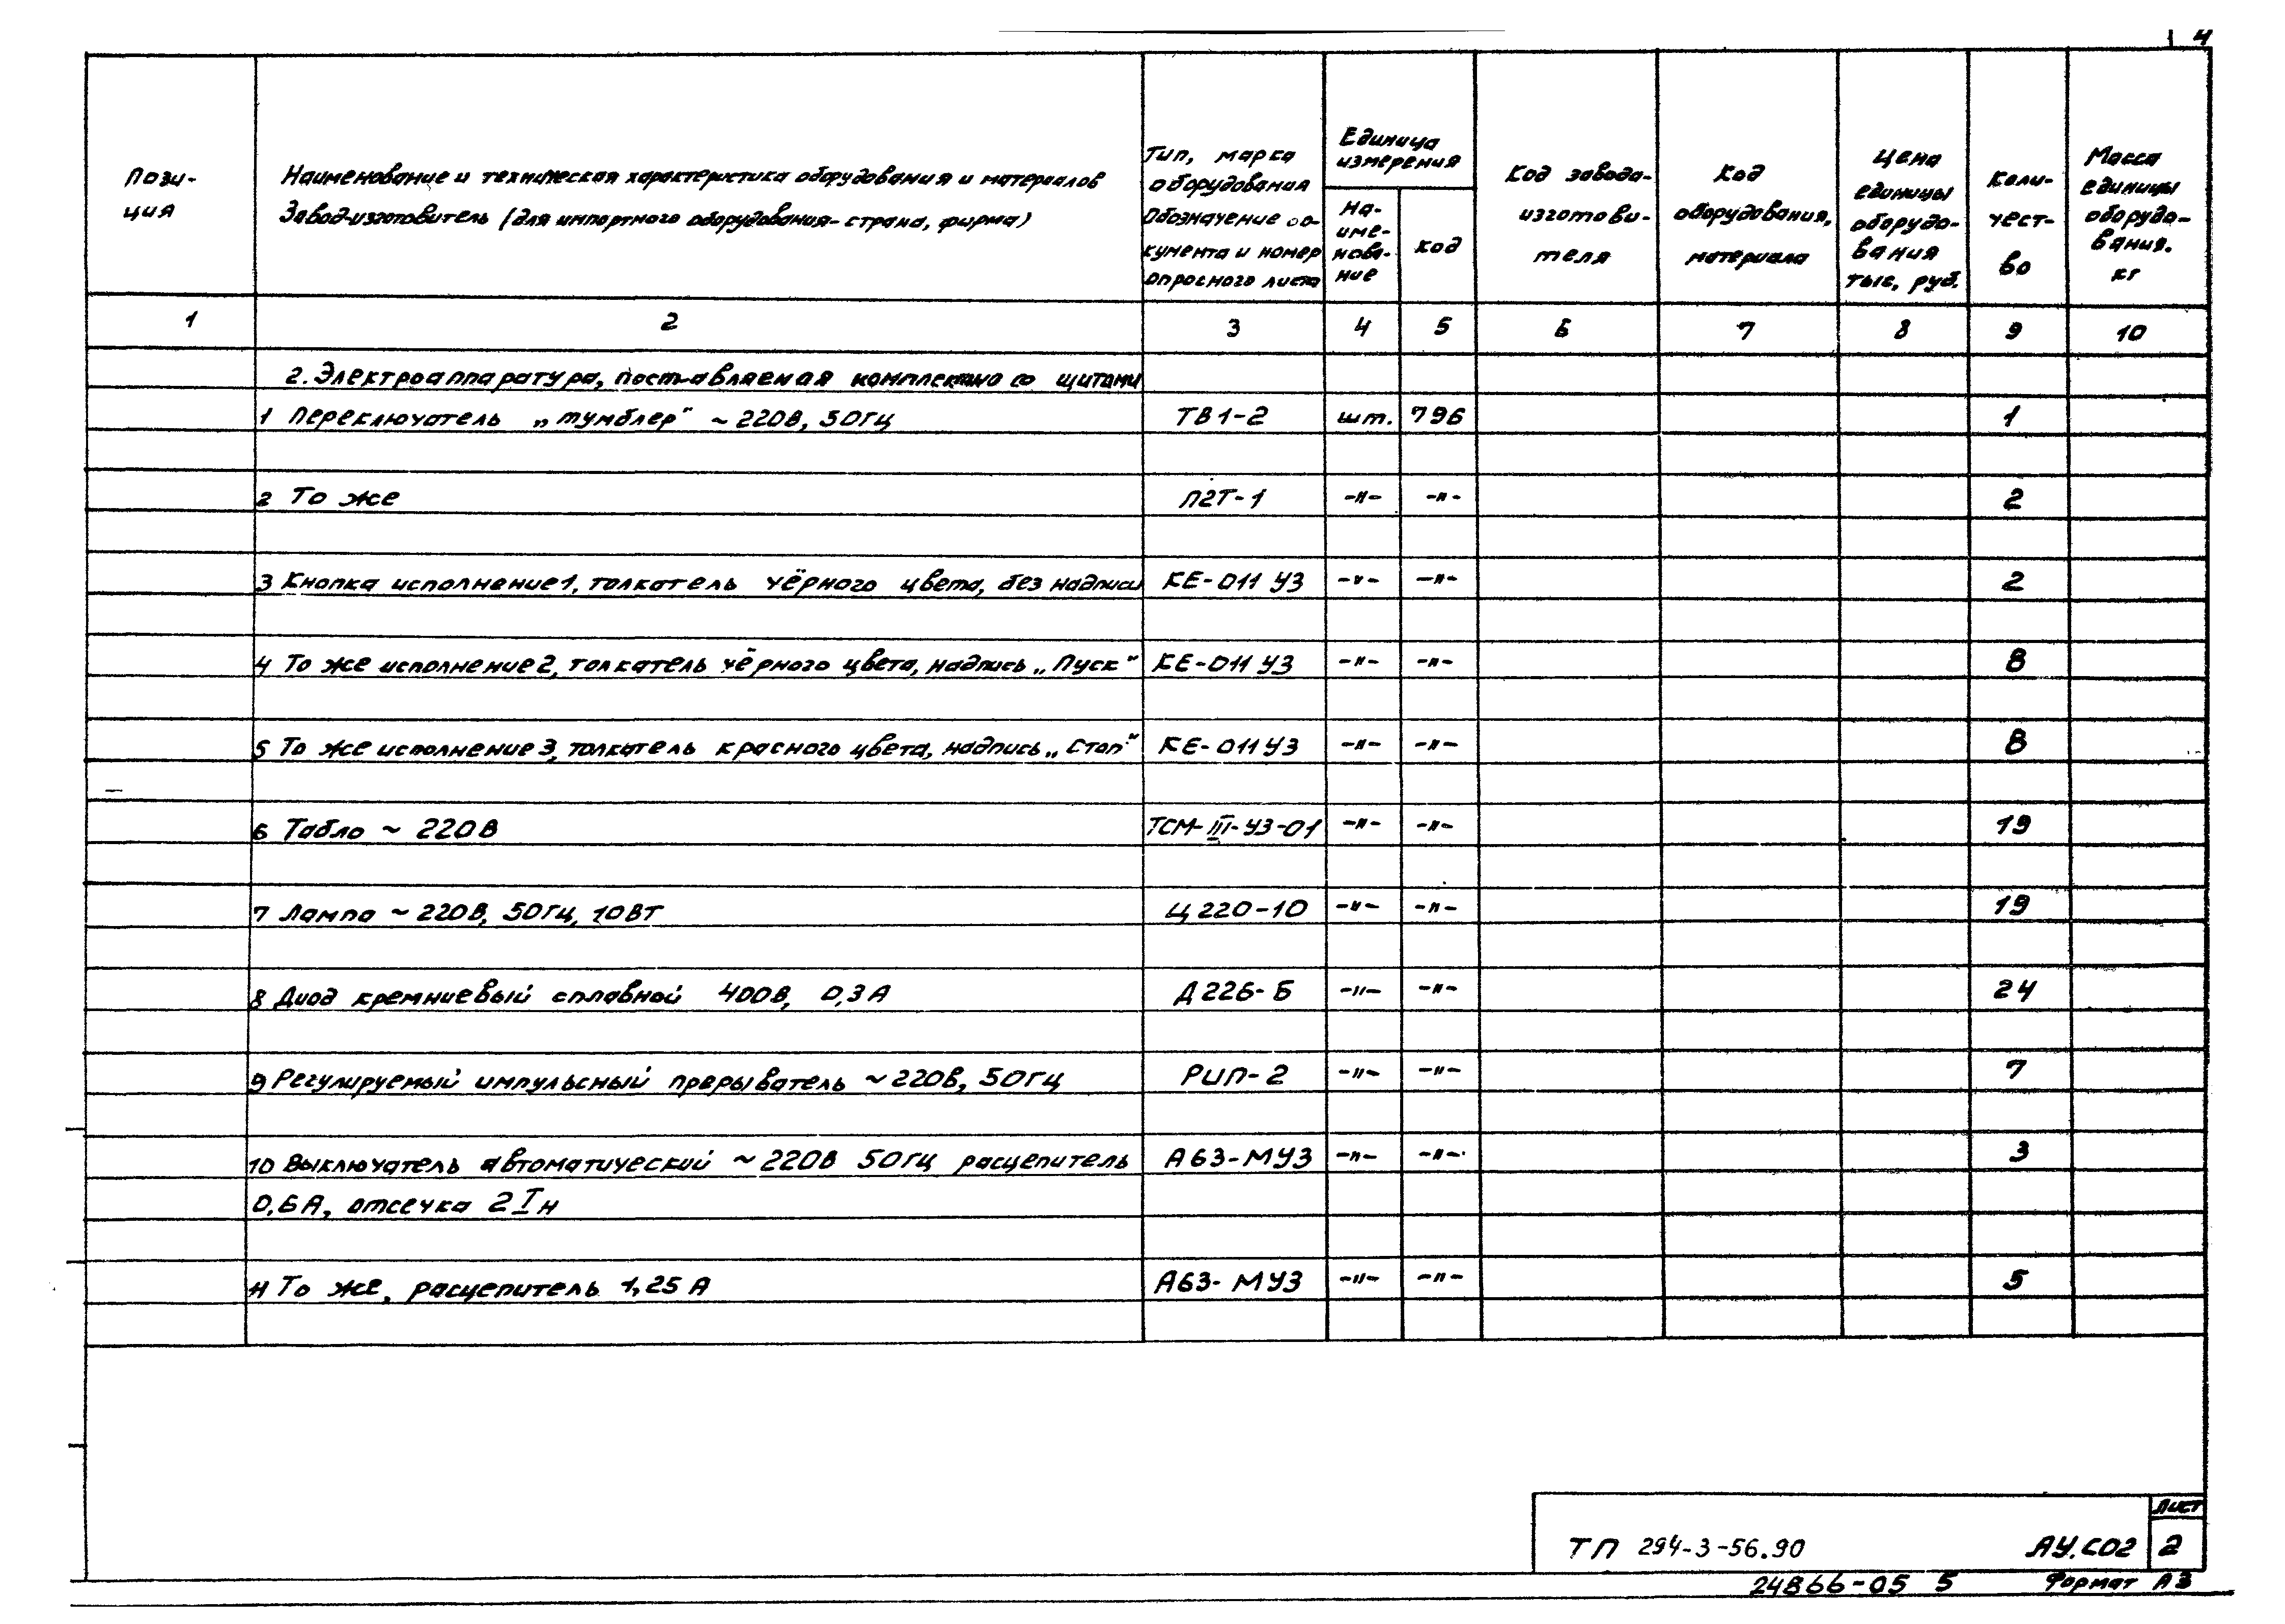 4
Пози-
ция
Наименование и техническая характеристика оборудования и материалов
Завод-изготовитель (для импортного оборудования- страна, фирма)
Тип, марка
оборудования
Обозначение до-
кумента и номер
опросного листа
Единица
измерения
На-
име-
нова-
ние
код
Код завода-
изготови-
теля
Код
оборудования,
материала
Цена
единицы
оборудо-
вания
тыс, руб.
Коли-
чест-
во
Масса
единицы
оборудо-
вания.
кг
1 2 3 4 5 6 7 8 9 10
2. Электроаппаратура, поставляемая комплектно со щитами
1 Переключатель „тумблер" ~ 220В, 50Гц ТВ1-2 шт. 796 1
2 То же П2Т-1 -"- -"- 2
3 Кнопка исполнение 1, толкатель чёрного цвета, без надписи КЕ-011 У3 -"- -"- 2
4 То же исполнение 2, толкатель чёрного цвета, надпись „Пуск" КЕ-011 У3 -"- -"- 8
5 То же исполнение 3, толкатель красного цвета, надпись „Стоп" КЕ-011 У3 -"- -"- 8
6 Табло ~ 220В ТСМ-III-У3-01 -"- -"- 19
7 Лампа ~ 220В, 50Гц, 10Вт Ц220-10 -"- -"- 19
8 Диод кремниевый сплавной 400В, 0,3А Д226-Б -"- -"- 24
9 Регулируемый импульсный прерыватель ~ 220В, 50Гц РИП-2 -"- -"- 7
10 Выключатель автоматический ~ 220В 50Гц расцепитель А63-МУ3 -"- -"- 3
0,6А, отсечка 2Iн
11 То же, расцепитель 1,25А А63-МУ3 -"- -"- 5
Лист
ТП 294-3-56.90 АУ.СО2 2
24866-05 5 Формат А3